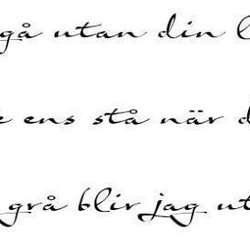 gå utan din l
e ens stå när d
grå blir jag ut